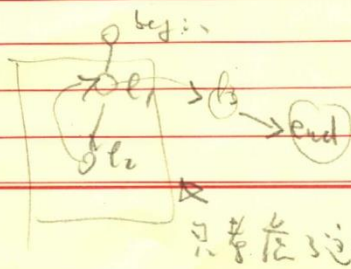 begin
l1
l3
end
l2
只考虑了这